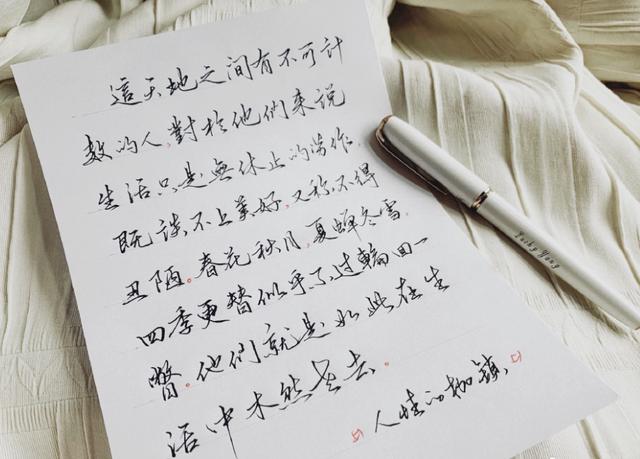 這天地之间有不可计
数的人，對於他們来说
生活只是無休止的劳作，
既谈不上美好，又称不得
丑陋。春花秋月，夏蝉冬雪，
四季更替似乎不过輪回一
瞥。他們就是如此在生
活中木然老去。
《人性的枷鎖》
Yucky Yong